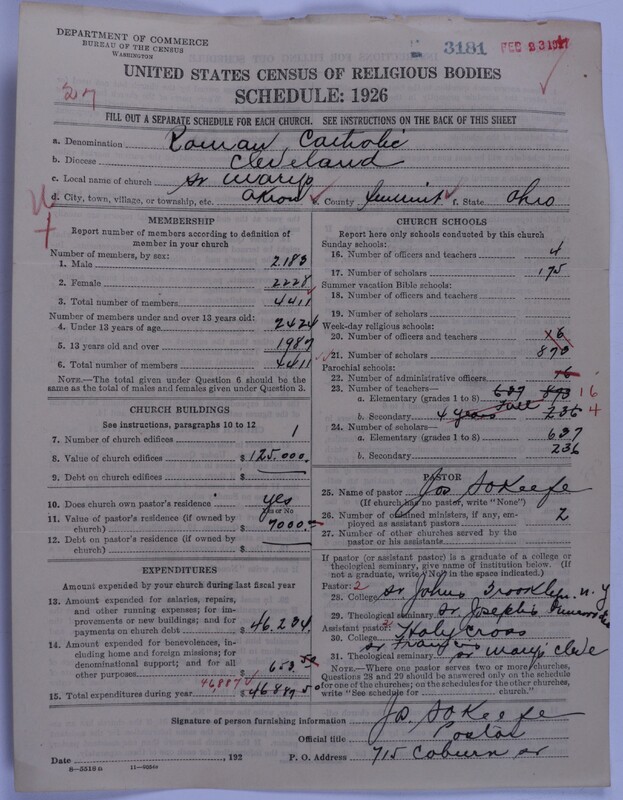 DEPARTMENT OF COMMERCE
BUREAU OF THE CENSUS
WASHINGTON
3181 FEB 23 1927
UNITED STATES CENSUS OF RELIGIOUS BODIES
27
SCHEDULE: 1926
FILL OUT A SEPARATE SCHEDULE FOR EACH CHURCH. SEE INSTRUCTIONS ON THE BACK OF THIS SHEET
a. Denomination Roman Catholic
b. Diocese Cleveland
c. Local name of church St Marys
d. City, town, village, or township, etc. Akron e. County Summit f. State Ohio
MEMBERSHIP
Report number of members according to definition of
member in your church
Number of members, by sex:
1. Male 2183
2. Female 2228
3. Total number of members 4411
Number of members under and over 13 years old:
4. Under 13 years of age 2424
5. 13 years old and over 1987
6. Total number of members 4411
NOTE.—The total given under Question 6 should be the
same as the total of males and females given under Question 3.
CHURCH BUILDINGS
See instructions, paragraphs 10 to 12
7. Number of church edifices 1
8. Value of church edifices $ 125.000.
9. Debt on church edifices $
10. Does church own pastor's residence yes
Yes or No
11. Value of pastor's residence (if owned by
church) $ 7000.
12. Debt on pastor's residence (if owned by
church) $
EXPENDITURES
Amount expended by your church during last fiscal year
13. Amount expended for salaries, repairs,
and other running expenses; for im-
provements or new buildings; and for
payments on church debt $ 46.234
14. Amount expended for benevolences,
including home and foreign missions; for
denominational support; and for all
other purposes 653.50
46,887
15. Total expenditures during year $ 46887.50
CHURCH SCHOOLS
Report here only schools conducted by this church
Sunday schools:
16. Number of officers and teachers 4
17. Number of scholars 175
Summer vacation Bible schools:
18. Number of officers and teachers
19. Number of scholars
Week-day religious schools:
20. Number of officers and teachers 16
21. Number of scholars 873
Parochial schools:
22. Number of administrative officers 16
23. Number of teachers—
a. Elementary (grades 1 to 8) 637 873 16
b. Secondary 4 years Full 236 4
24. Number of scholars—
a. Elementary (grades 1 to 8) 637
b. Secondary 236
PASTOR
25. Name of pastor Jos O'Keefe
(If church has no pastor, write "None")
26. Number of ordained ministers, if any, em-
ployed as assistant pastors 2
27. Number of other churches served by the
pastor or his assistants
If pastor (or assistant pastor) is a graduate of a college or
theological seminary, give name of institution below. (If
not a graduate, write "No" in the space indicated.)
Pastor: 2
28. College St Johns Brooklyn. N.Y
29. Theological seminary St Josephs
Assistant pastor: 2
30. College Holy Cross
31. Theological seminary St Marys Cleve
NOTE.—Where one pastor serves two or more churches,
Questions 28 and 29 should be answered only on the schedule
for one of the churches; on the schedules for the other churches,
write "See schedule for church."
Signature of person furnishing information Jos O'Keefe
Official title Pastor
Date , 192 P. O. Address 715 Coburn St
8—5518 a 11—8054a